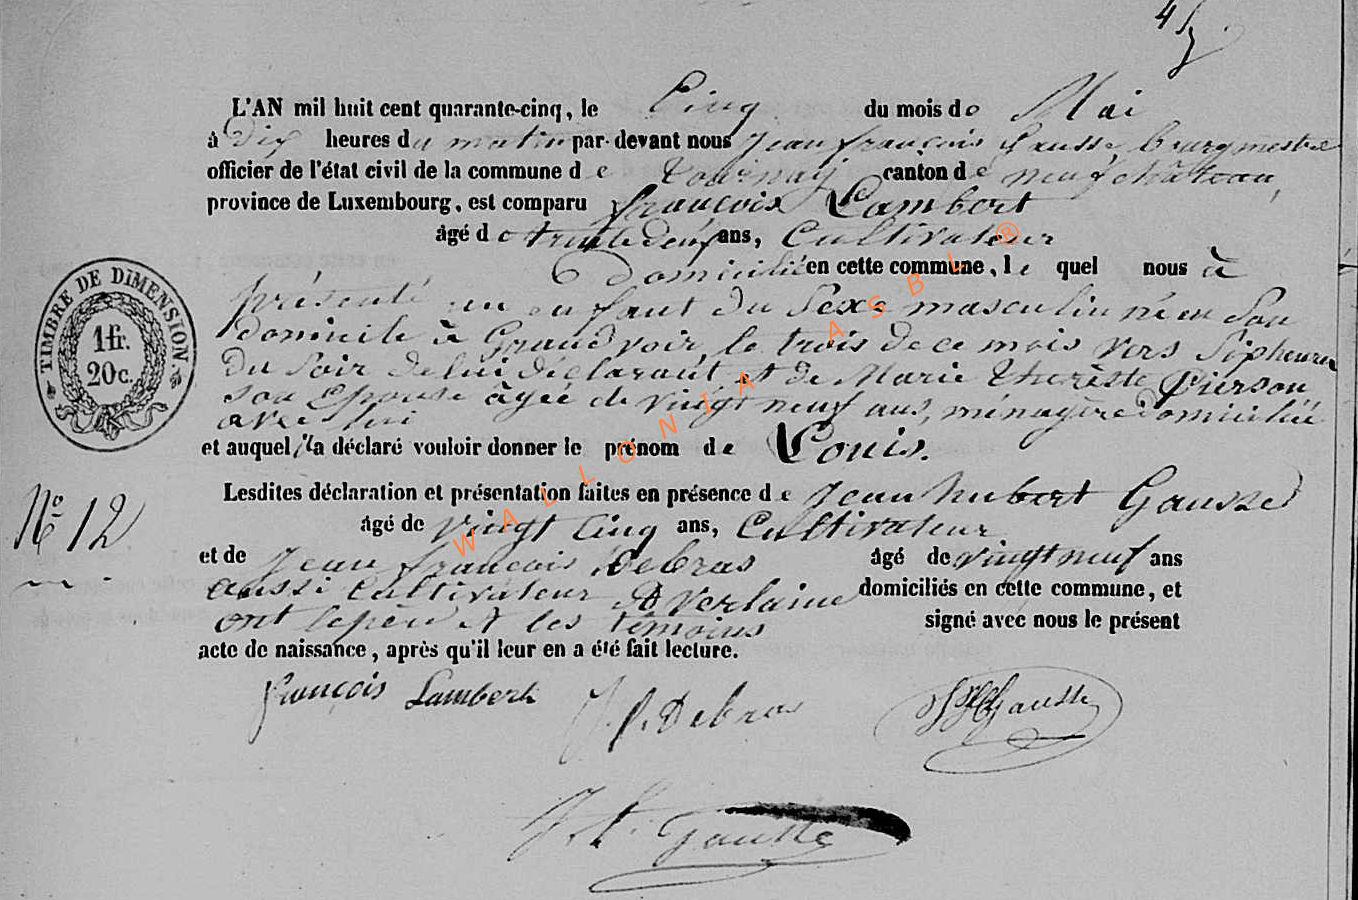 L'AN mil huit cent quarante-cinq, le Cinq du mois de Mai
à dix heures du matin par-devant nous Jean françois Gausse bourgmestre
officier de l'état civil de la commune de Tournay canton de neufchâteau,
province de Luxembourg, est comparu françois Lambert
âgé de trente deux ans, Cultivateur
Domicilié en cette commune, le quel nous à
présenté un enfant du Sexe masculin né en Son
domicile à Grandvoir, le trois de ce mois vers Sept heures
du Soir de lui déclarant et de Marie Thérèse Pierson
son Epouse âgée de vingt neuf ans, ménagère domiciliée
avec lui
et auquel il a déclaré vouloir donner le prénom de Louis.
Lesdites déclaration et présentation faites en présence de Jean hubert Gausse
âgé de vingt cinq ans, Cultivateur
et de Jean françois Debras âgé de vingt neuf ans
aussi Cultivateur à verlaine domiciliés en cette commune, et
ont le père et les témoins signé avec nous le présent
acte de naissance, après qu'il leur en a été fait lecture.
TIMBRE DE DIMENSION.
1fr.
20c.
No. 12
françois Lambert
J. f. Debras
JH Gausse
J. f. Gausse
WALLONIA ASBL ®